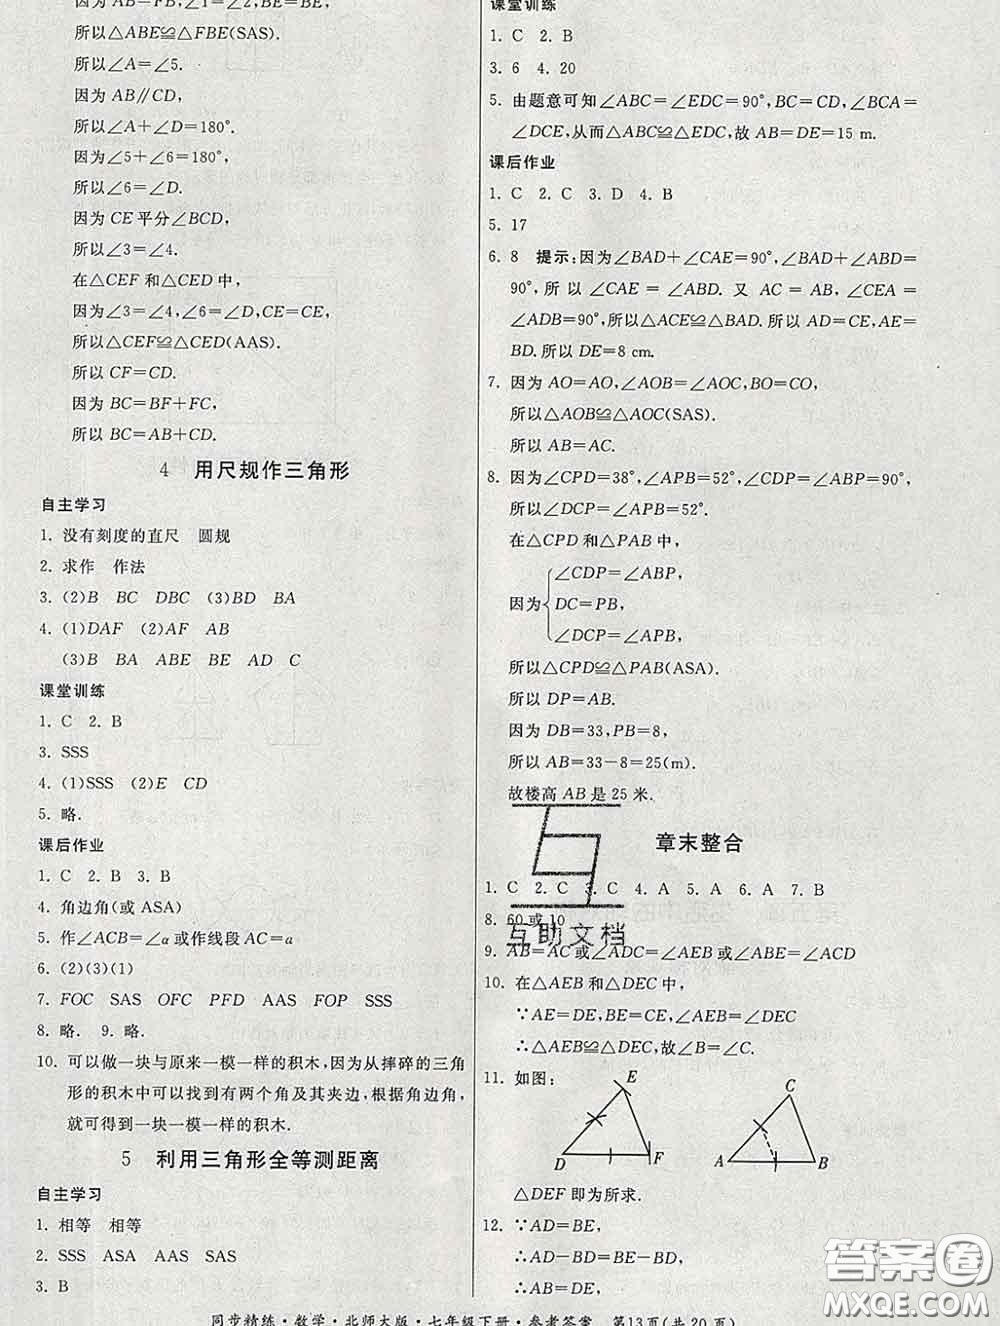 因为 AB=FB,∠1=∠2,BE=BE,
所以△ABE≌△FBE(SAS).
所以∠A=∠5.
因为 AB∥CD,
所以∠A+∠D=180°.
因为∠5+∠6=180°,
所以∠6=∠D.
因为 CE 平分∠BCD,
所以∠3=∠4.
在△CEF 和△CED 中,
因为∠3=∠4,∠6=∠D,CE=CE,
所以△CEF≌△CED(AAS).
所以 CF=CD.
因为 BC=BF+FC,
所以 BC=AB+CD.
4 用尺规作三角形
自主学习
1. 没有刻度的直尺 圆规
2. 求作 作法
3. (2)B BC DBC (3)BD BA
4. (1)DAF (2)AF AB
(3)B BA ABE BE AD C
课堂训练
1. C 2. B
3. SSS
4. (1)SSS (2)E CD
5. 略.
课后作业
1. C 2. B 3. B
4. 角边角(或 ASA)
5. 作∠ACB=∠α或作线段 AC=a
6. (2)(3)(1)
7. FOC SAS OFC PFD AAS FOP SSS
8. 略. 9. 略.
10. 可以做一块与原来一模一样的积木,因为从摔碎的三角
形的积木中可以找到有两个角及其夹边,根据角边角,
就可得到一块一模一样的积木.
5 利用三角形全等测距离
自主学习
1. 相等 相等
2. SSS ASA AAS SAS
3. B
课堂训练
1. C 2. B
3. 6 4. 20
5. 由题意可知∠ABC=∠EDC=90°,BC=CD,∠BCA=
∠DCE,从而△ABC≌△EDC,故 AB=DE=15 m.
课后作业
1. C 2. C 3. D 4. B
5. 17
6. 8 提示:因为∠BAD+∠CAE=90°,∠BAD+∠ABD=
90°,所以∠CAE=∠ABD. 又 AC=AB,∠CEA=
∠ADB=90°,所以△ACE≌△BAD.所以 AD=CE,AE=
BD.所以 DE=8 cm.
7. 因为 AO=AO,∠AOB=∠AOC,BO=CO,
所以△AOB≌△AOC(SAS).
所以 AB=AC.
8. 因为∠CPD=38°,∠APB=52°,∠CDP=∠ABP=90°,
所以∠DCP=∠APB=52°.
在△CPD 和△PAB 中,
∠CDP=∠ABP,
因为 DC=PB,
∠DCP=∠APB,
所以△CPD≌△PAB(ASA).
所以 DP=AB.
因为 DB=33,PB=8,
所以 AB=33-8=25(m).
故楼高 AB 是 25 米.
章末整合
1. C 2. C 3. C 4. A 5. A 6. A 7. B
8. 60或10
互助文档
9. AB=AC或∠ADC=∠AEB或∠ABE=∠ACD
10. 在△AEB 和△DEC 中,
∵AE=DE,BE=CE,∠AEB=∠DEC
∴△AEB≌△DEC,故∠B=∠C.
11. 如图:
E C
D F A B
△DEF 即为所求.
12. ∵AD=BE,
∴AD-BD=BE-BD,
∴AB=DE,
答案圈
MXQE.COM
同步精练·数学·北师大版·七年级下册·参考答案 第13页(共20页)